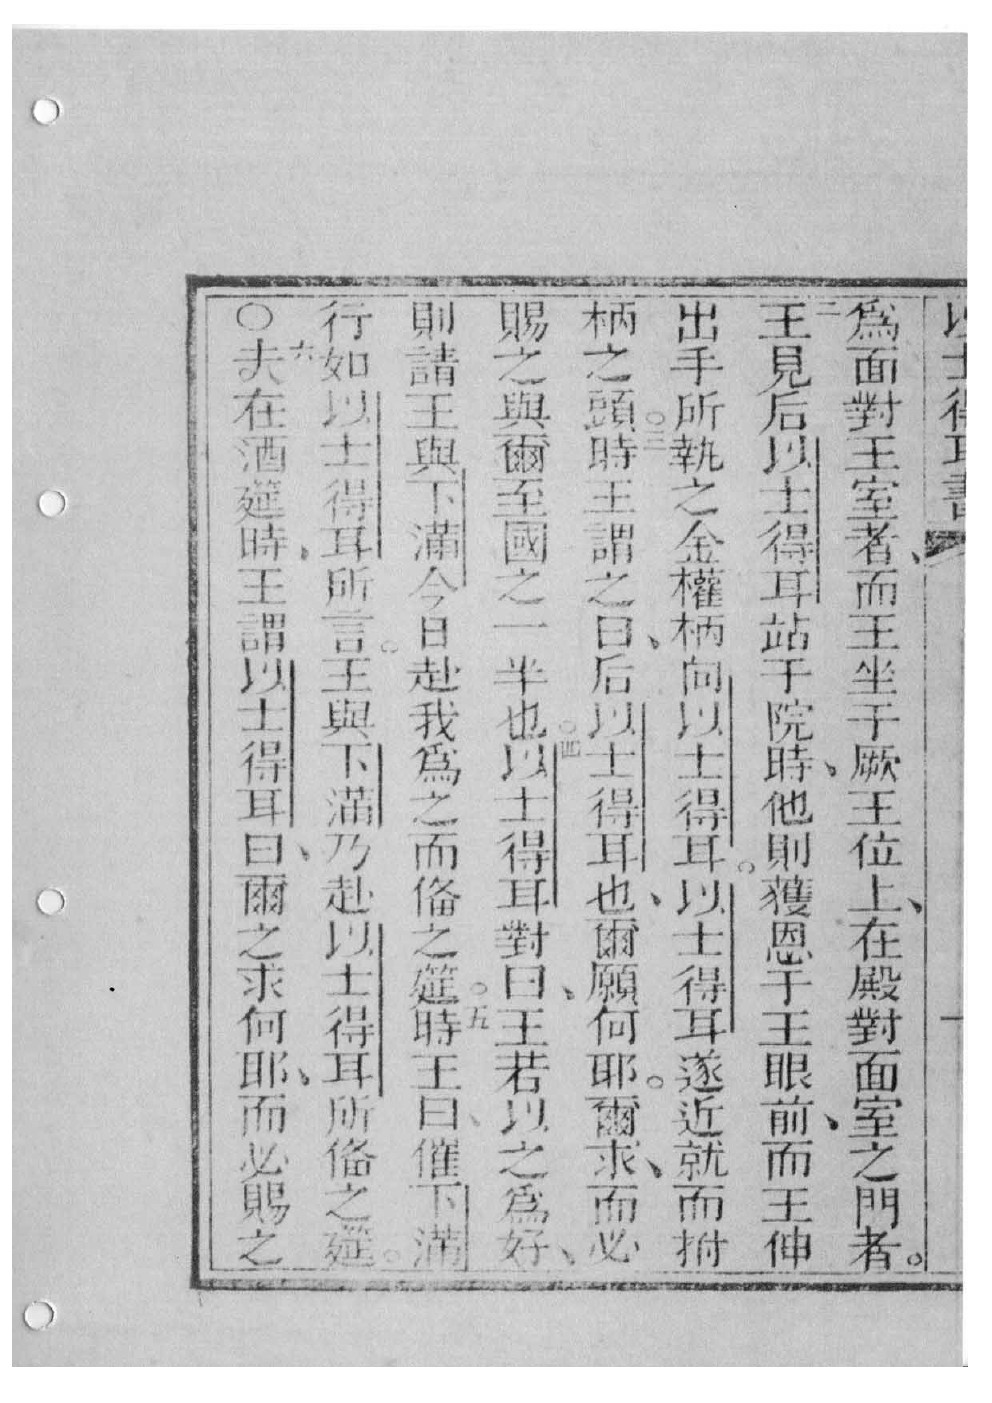 以士得耳書 一
爲面對王室者、而王坐于厥王位上、在殿對面室之門者。
二王見后以士得耳站于院時、他則獲恩于王眼前、而王伸
出手所執之金權柄向以士得耳。以士得耳遂近就而拊
柄之頭○三時王謂之曰、后以士得耳也、爾願何耶。爾求、而必
賜之與爾至國之一半也○四以士得耳對曰、王若以之爲好、
則請王與下滿今日赴我爲之而俻之筵○五時王曰、催下滿
行如以士得耳所言。王與下滿乃赴以士得耳所俻之筵。
○六夫在酒筵時、王謂以士得耳曰、爾之求何耶、而必賜之